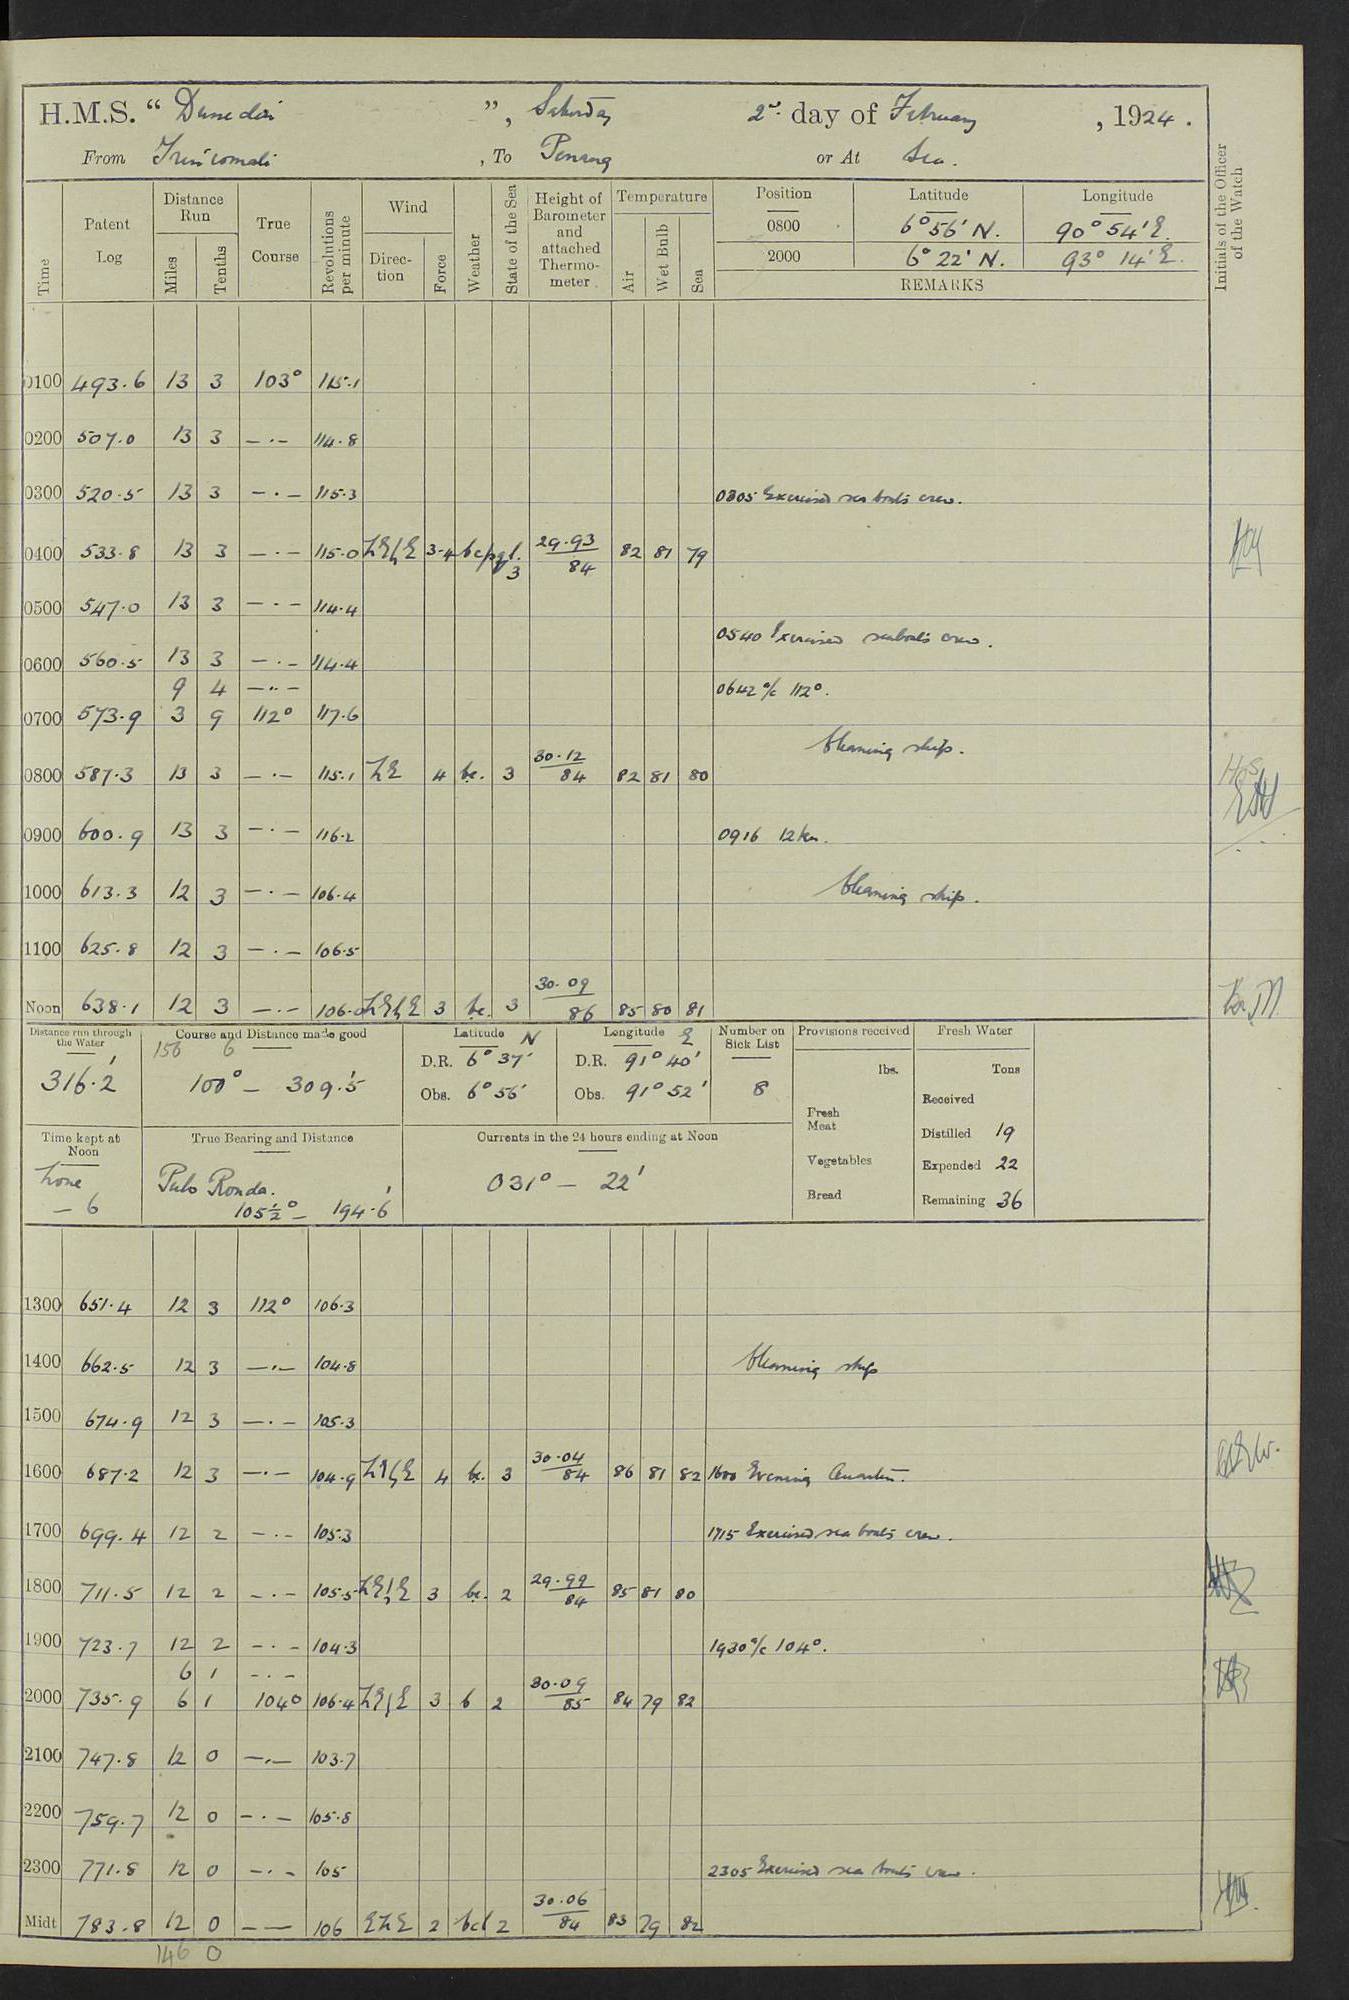 H.M.S. " Dunedin ", Saturday 2nd day of February, 1924.
From Trincomali, To Penang or At Sea.
Time Patent Log Distance Run Miles Tenths True Course Revolutions per minute Wind Direction Force Weather State of the Sea Height of Barometer and attached Thermometer. Temperature Air Wet Bulb Sea Position Latitude Longitude Initials of the Officer of the Watch
0800 6° 56' N. 90° 54' E.
2000 6° 22' N. 93° 14' E.
REMARKS
0100 493.6 13 3 103° 115.1
0200 507.0 13 3 — · — 114.8
0300 520.5 13 3 — · — 115.3 0305 Exercised sea boats crew.
0400 533.8 13 3 — · — 115.0 3-4 3 29.93 84 82 81 79
0500 547.0 13 3 — · — 114.4
0540 Exercised seaboats crew.
0600 560.5 13 3 — · — 114.4
9 4 — · — 0642 a/c 112°.
0700 573.9 3 9 112° 117.6
Cleaning ship.
0800 587.3 13 3 — · — 115.1 NE 4 bc. 3 30.12 84 82 81 80
0900 600.9 13 3 — · — 116.2 0916 12 kn.
1000 613.3 12 3 — · — 106.4 Cleaning ship.
1100 625.8 12 3 — · — 106.5
Noon 638.1 12 3 — · — 106.0 NE b E 3 bc. 3 30.09 86 85 80 81
Distance run through the Water 316.2'
Course and Distance made good 156 6 100° — 309.5'
Latitude N D.R. 6° 37' Obs. 6° 56'
Longitude E D.R. 91° 40' Obs. 91° 52'
Number on Sick List 8
Provisions received lbs. Fresh Meat Vegetables Bread
Fresh Water Tons Received Distilled 19 Expended 22 Remaining 36
Time kept at Noon Zone – 6
True Bearing and Distance Pulo Ronda. 105½° — 194.6'
Currents in the 24 hours ending at Noon 031° — 22'
1300 651.4 12 3 112° 106.3
1400 662.5 12 3 — · — 104.8 Cleaning ship
1500 674.9 12 3 — · — 105.3
1600 687.2 12 3 — · — 104.9 4 bc. 3 30.04 84 86 81 82 1600 Evening Quarters.
1700 699.4 12 2 — · — 105.3 1715 Exercised sea boats crew.
1800 711.5 12 2 — · — 105.5 NE b E 3 bc. 2 29.99 84 85 81 80
1900 723.7 12 2 — · — 104.3 1930 a/c 104°.
6 1 — · —
2000 735.9 6 1 104° 106.4 NE b E 3 b 2 30.09 85 84 79 82
2100 747.8 12 0 — · — 103.7
2200 759.7 12 0 — · — 105.8
2300 771.8 12 0 — · — 105 2305 Exercised sea boats crew.
Midt 783.8 12 0 — — 106 ENE 2 bcl 2 30.06 84 83 79 82
146 0